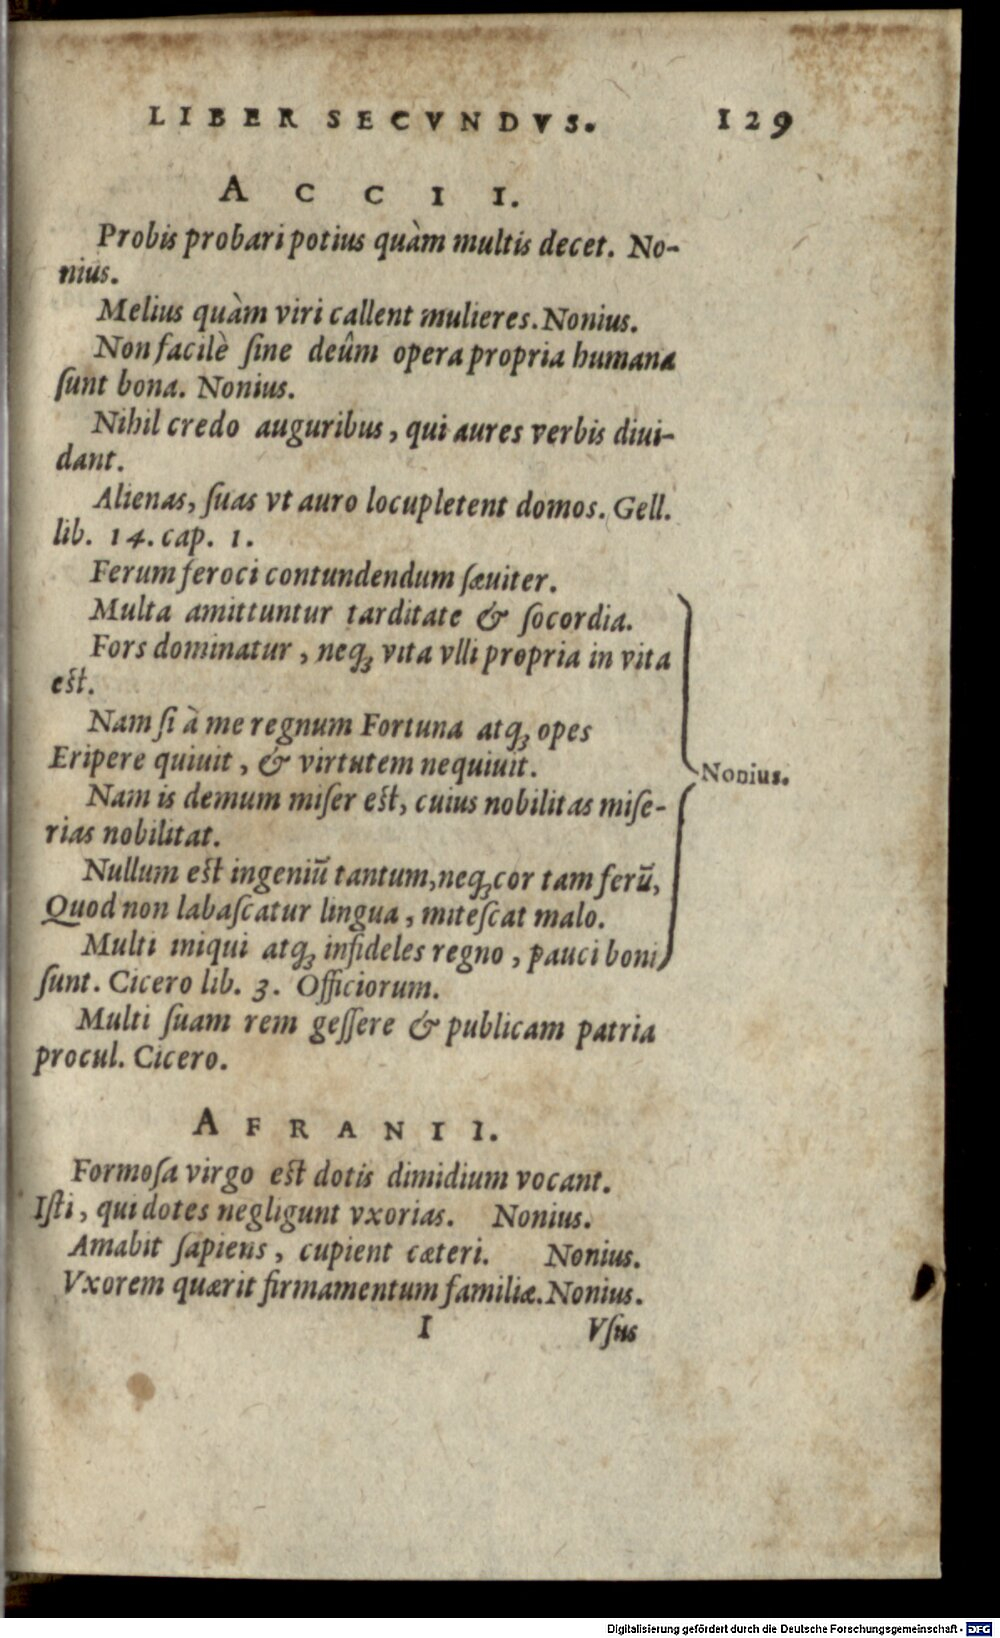 LIBER SECVNDVS. 129
ACCII.
Probis probari potius quàm multis decet. No-
nius.
Melius quàm viri callent mulieres. Nonius.
Non facilè ſine deûm opera propria humana
ſunt bona. Nonius.
Nihil credo auguribus, qui aures verbis diui-
dant.
Alienas, ſuas vt auro locupletent domos. Gell.
lib. 14. cap. 1.
Ferum feroci contundendum ſæuiter.
Multa amittuntur tarditate & ſocordia.
Fors dominatur, neq́; vita vlli propria in vita
eſt.
Nam ſi à me regnum Fortuna atq́; opes
Eripere quiuit, & virtutem nequiuit.
Nonius.
Nam is demum miſer eſt, cuius nobilitas miſe-
rias nobilitat.
Nullum eſt ingeniū tantum, neq́; cor tam ferū,
Quod non labaſcatur lingua, miteſcat malo.
Multi iniqui atq́; infideles regno, pauci boni
ſunt. Cicero lib. 3. Officiorum.
Multi ſuam rem geſſere & publicam patria
procul. Cicero.
AFRANII.
Formoſa virgo eſt dotis dimidium vocant.
Iſti, qui dotes negligunt vxorias. Nonius.
Amabit ſapiens, cupient cæteri. Nonius.
Vxorem quærit firmamentum familiæ. Nonius.
I Vſus
Digitalisierung gefördert durch die Deutsche Forschungsgemeinschaft - DFG